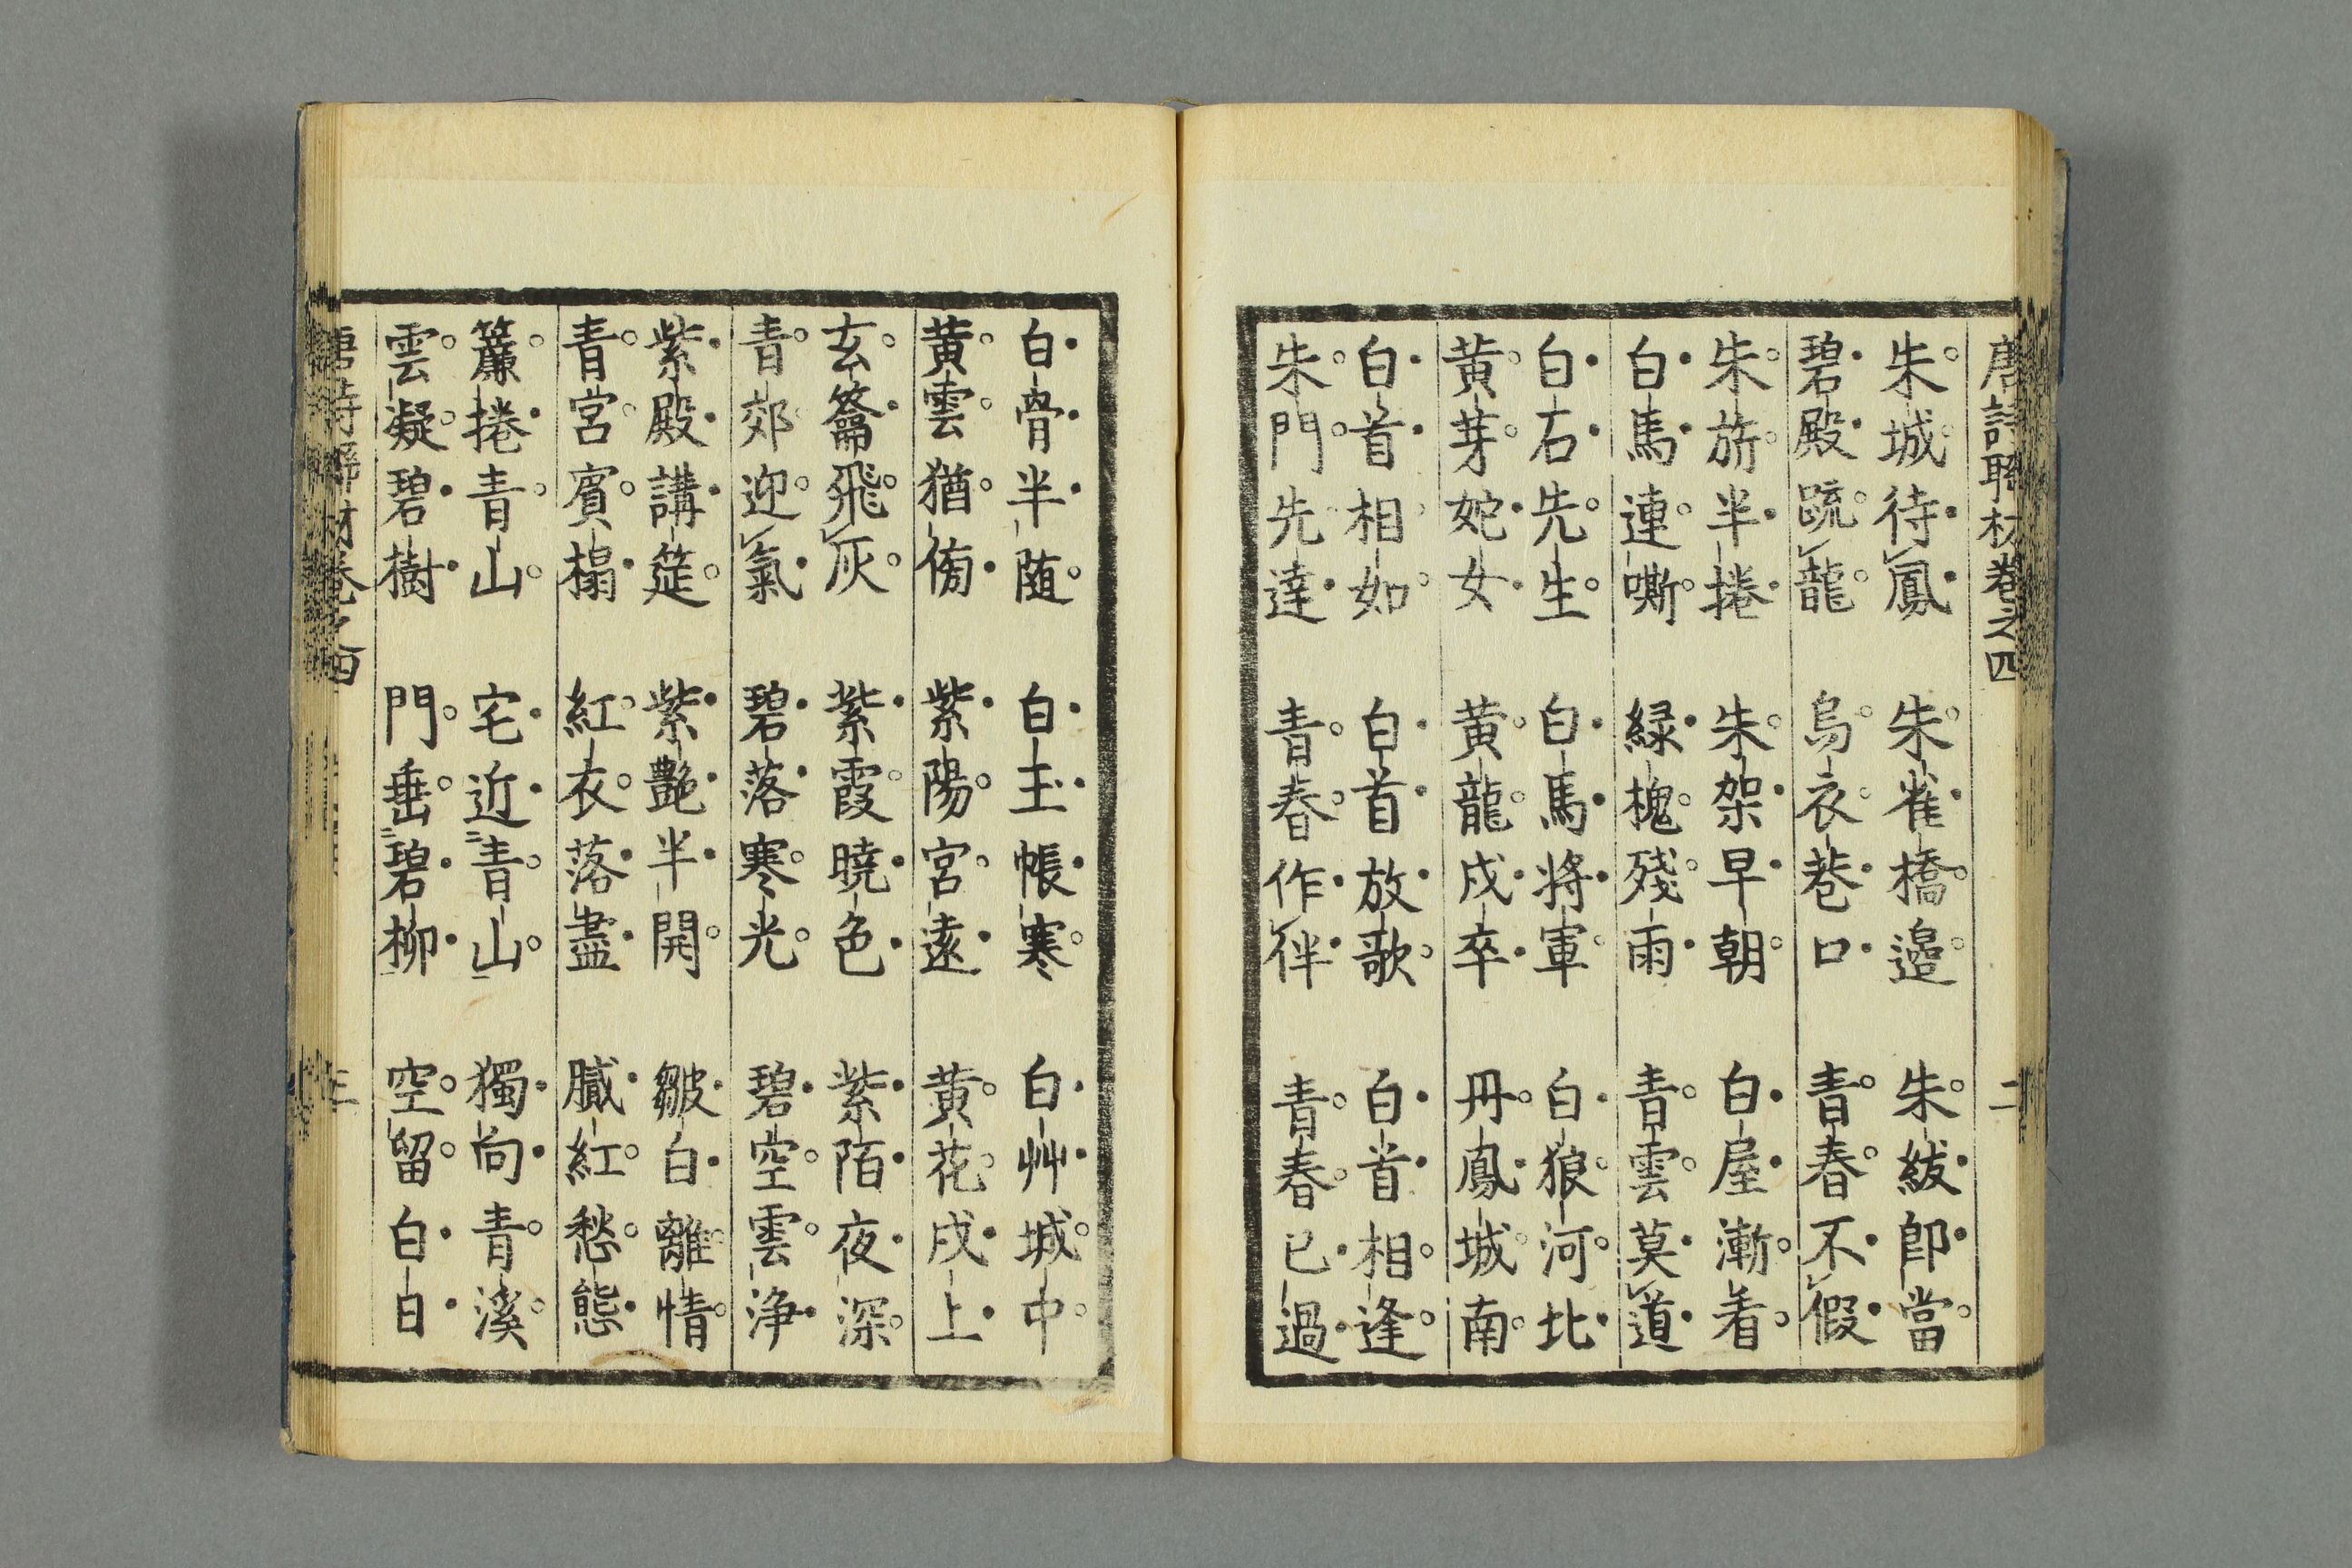 唐詩聯材卷之四 二
朱城待鳳 朱雀橋邉 朱紱即當
碧殿䟽龍 烏衣巷口 青春不假
朱旂半捲 朱架早朝 白屋漸看
白馬連嘶 緑槐殘雨 青雲莫道
白石先生 白馬將軍 白狼河北
黄芽姹女 黄龍戍卒 丹鳳城南
白首相如 白首放歌 白首相逢
朱門先達 青春作伴 青春已過
白骨半随 白玉帳寒 白艸城中
黄雲猶侑 紫陽宮遠 黄花戍上
玄籥飛灰 紫霞曉色 紫陌夜深
青郊迎氣 碧落寒光 碧空雲浄
紫殿講筵 紫艶半開 皺白離情
青宮賓榻 紅衣落盡 膩紅愁態
簾捲青山 宅近青山 獨向青溪
雲凝碧樹 門垂碧柳 空留白白
唐詩聯材卷之四 三